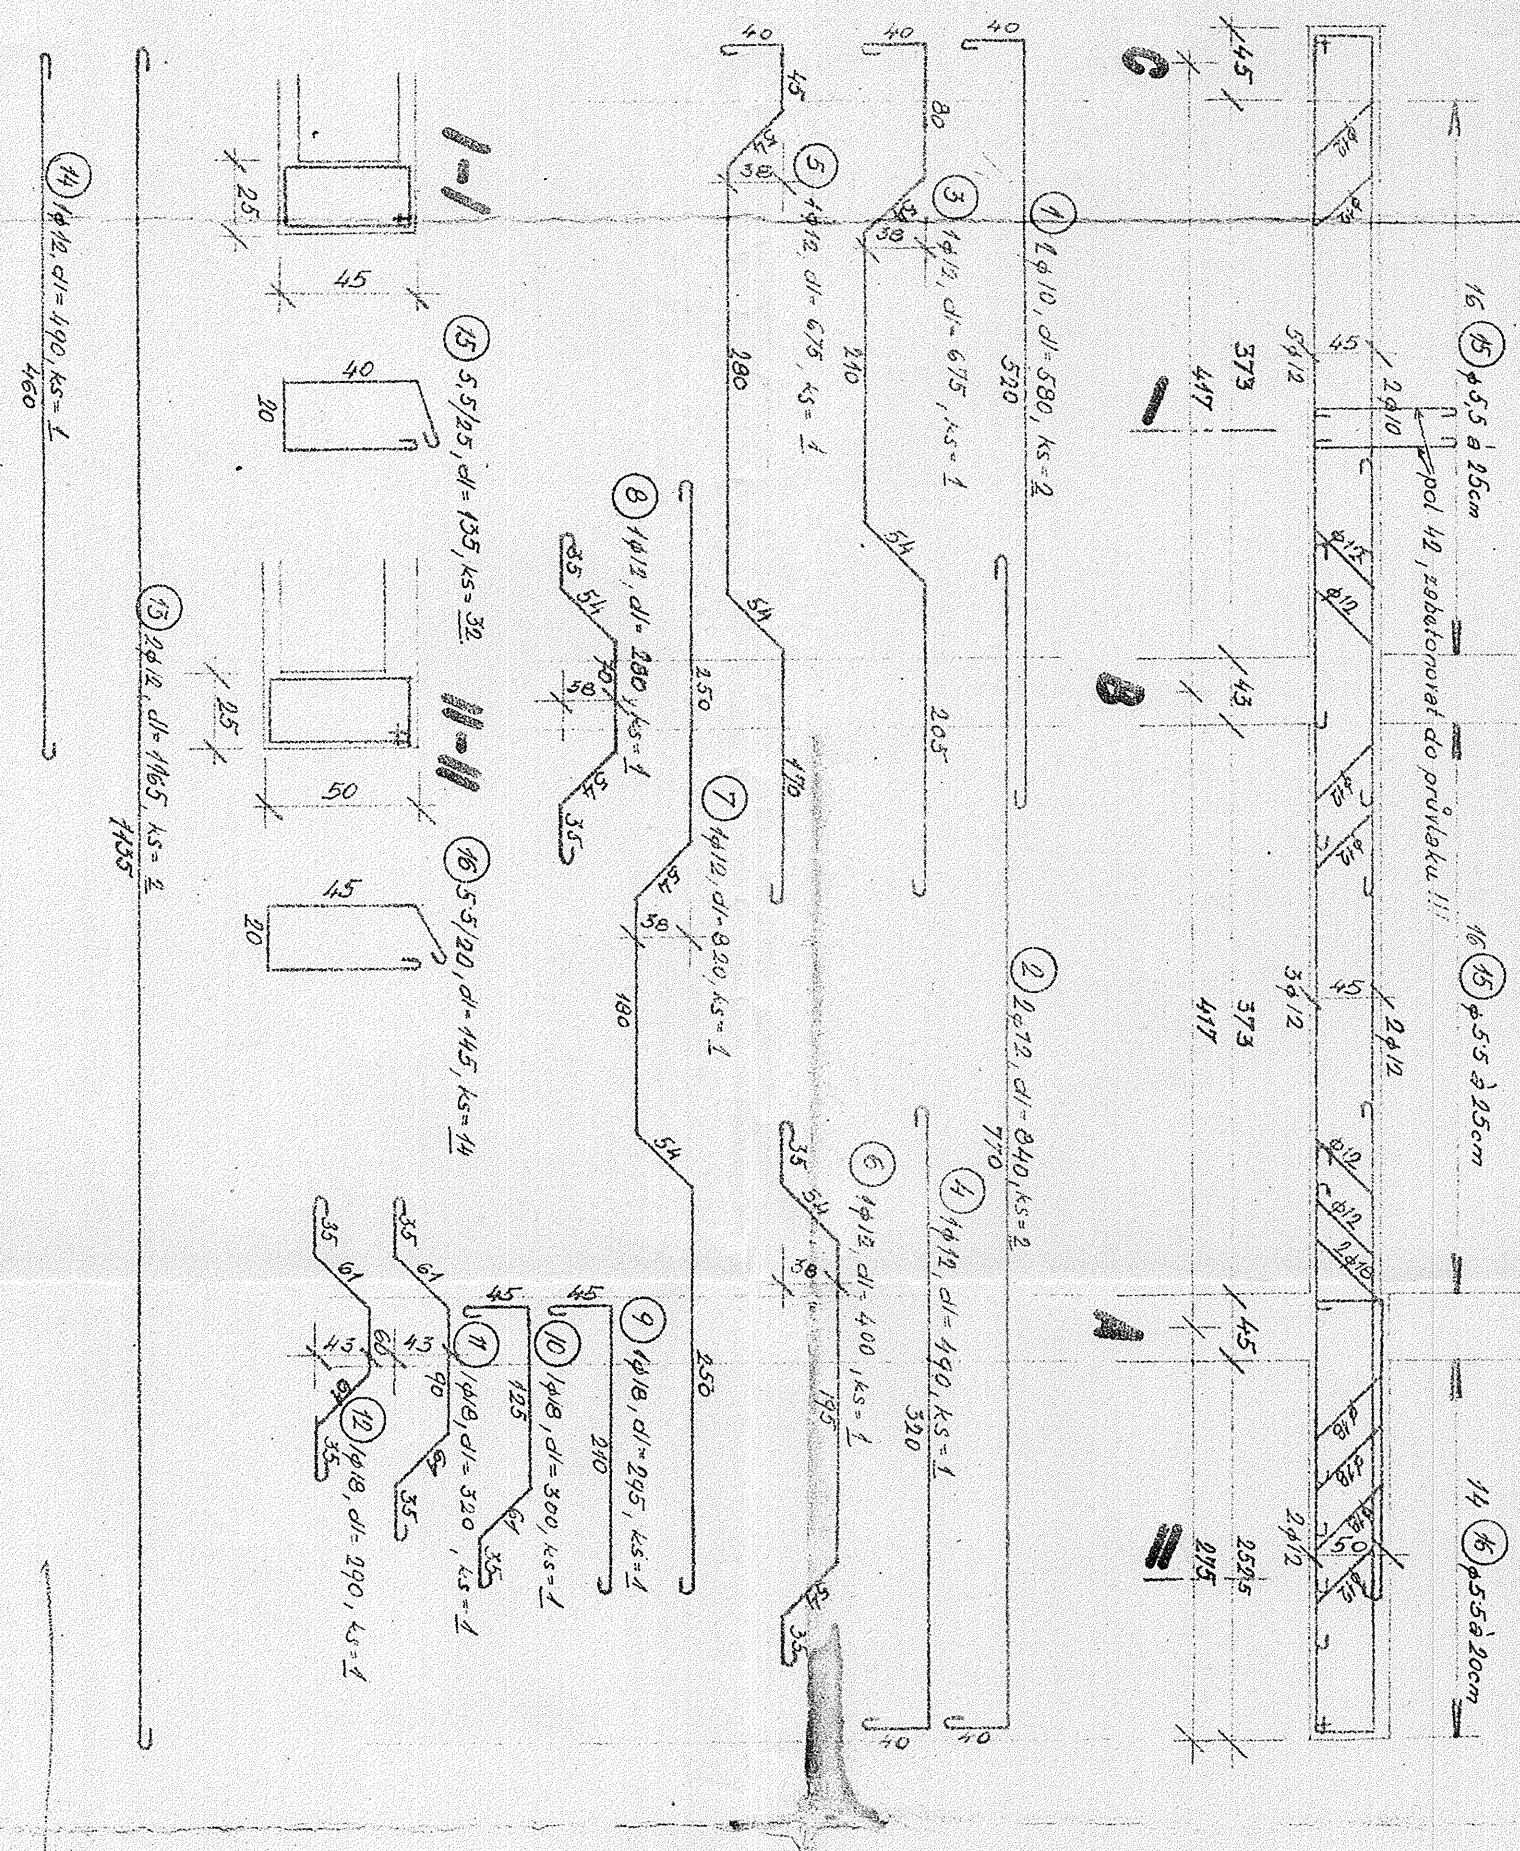 16 (15) ϕ5,5 à 25cm
16 (15) ϕ5.5 à 25cm
14 (16) ϕ5.5 à 20cm
pol 42, zabetonovat do průvlaku !!!
2ϕ10
2ϕ12
45
45
50
ϕ12
ϕ12
ϕ12
ϕ12
ϕ12
ϕ12
ϕ12
ϕ12
2ϕ18
ϕ18
ϕ18
ϕ12
5ϕ12
3ϕ12
2ϕ12
45
373
43
373
45
2525
417
417
275
I
II
C
B
A
(1) 2ϕ10, dl=580, ks=2
40
520
(2) 2ϕ12, dl=840, ks=2
770
40
(3) 1ϕ12, dl=675, ks=1
40
80
54
38
240
54
205
(4) 1ϕ12, dl=490, ks=1
320
40
(5) 1ϕ12, dl=675, ks=1
40
45
54
38
280
54
170
(6) 1ϕ12, dl=400, ks=1
35
54
38
195
54
35
(7) 1ϕ12, dl=820, ks=1
250
54
38
180
54
250
(8) 1ϕ12, dl=280, ks=1
35
54
70
38
54
35
(9) 1ϕ18, dl=295, ks=1
45
240
(10) 1ϕ18, dl=300, ks=1
45
125
61
35
(11) 1ϕ18, dl=320, ks=1
35
61
43
90
61
35
(12) 1ϕ18, dl=290, ks=1
35
61
43
60
61
35
I-I
45
25
(15) 5,5/25, dl=135, ks=32
40
20
II-II
50
25
(16) 5.5/20, dl=145, ks=14
45
20
(13) 2ϕ12, dl=1165, ks=2
1135
(14) 1ϕ12, dl=490, ks=1
460